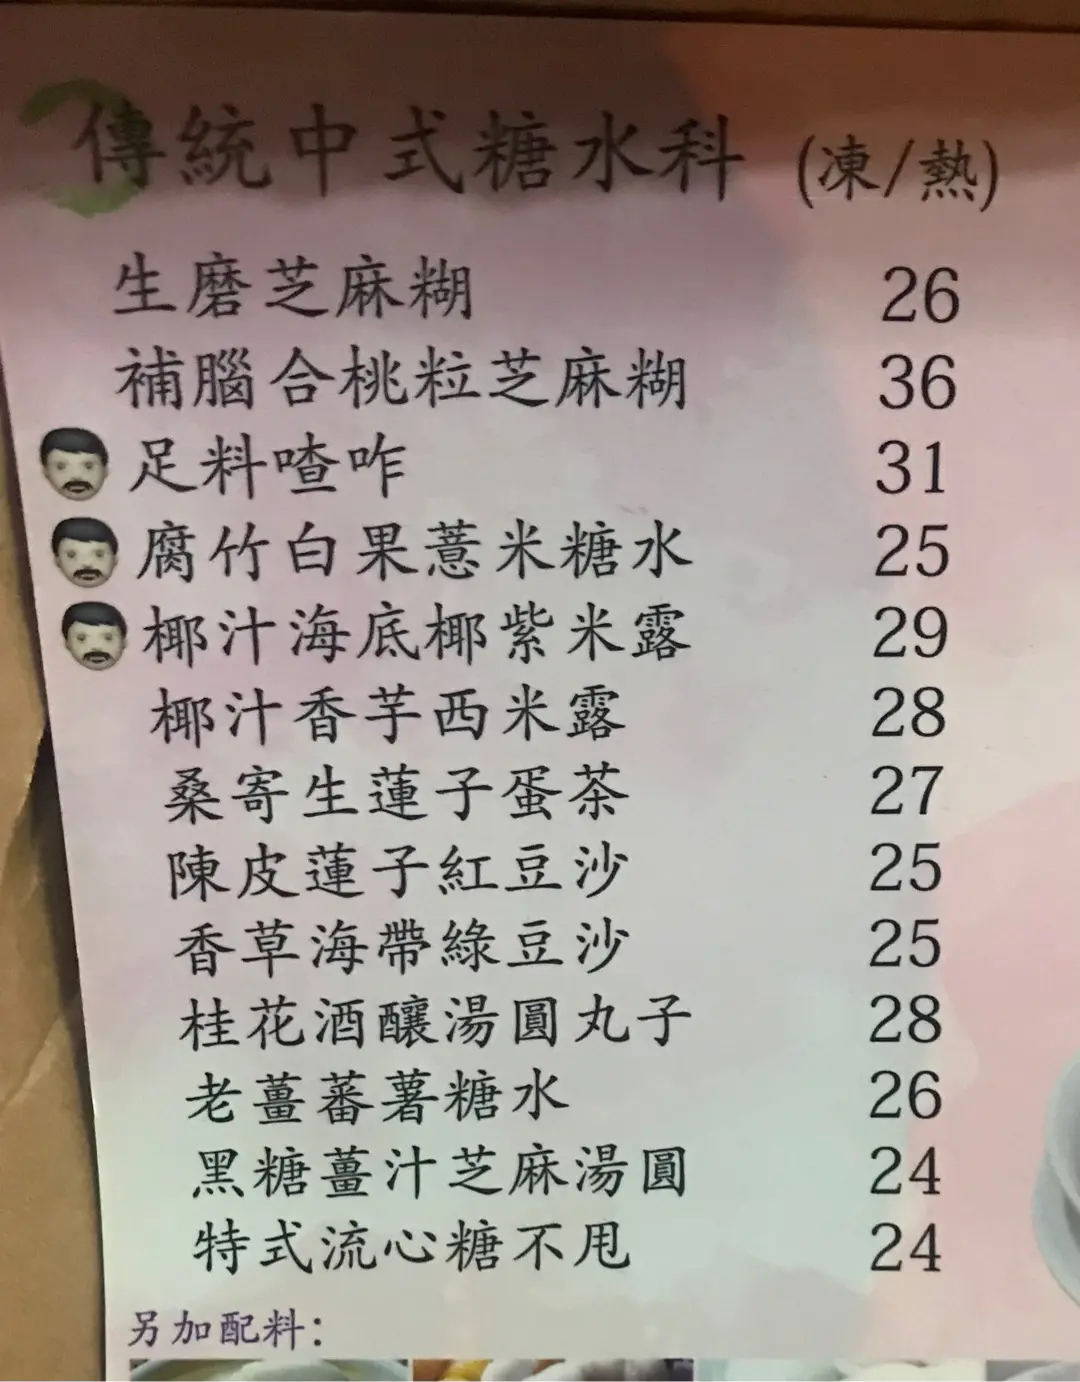 傳統中式糖水科 (凍/熱)
生磨芝麻糊 26
補腦合桃粒芝麻糊 36
足料喳咋 31
腐竹白果薏米糖水 25
椰汁海底椰紫米露 29
椰汁香芋西米露 28
桑寄生蓮子蛋茶 27
陳皮蓮子紅豆沙 25
香草海帶綠豆沙 25
桂花酒釀湯圓丸子 28
老薑蕃薯糖水 26
黑糖薑汁芝麻湯圓 24
特式流心糖不甩 24
另加配料: